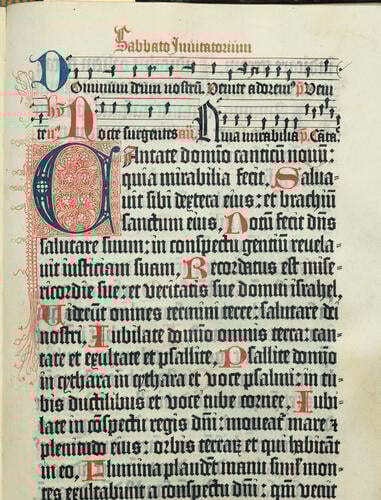 Sabbato Inuitatorium
Dominum deum nostrū. Venite adorem⁹ p̄ Veni
te. hȳ Nocte surgentes añ. Quia mirabilia p̄. Cāta.
CAntate domino canticū nouū:
quia mirabilia fecit. Salua-
uit sibi dextera eius: et brachiū
sanctum eius. Notū fecit dn̄s
salutare suum: in conspectu gentiū reuela-
uit iusticiam suam. Recordatus est mise-
ricordie sue: et veritatis sue domui israhel.
Uiderūt omnes termini terre: salutare dei
nostri. Iubilate domino omnis terra: can-
tate et exultate et psallite. Psallite domino
in cythara in cythara et voce psalmi: in tu-
bis ductilibus et voce tube cornee. Iubi-
late in cōspectu regis dn̄i: moueat mare et
plenitudo eius: orbis terraꝝ et qui habitāt
in eo. Flumina plaudēt manu siml̄ mon-
tes exultabunt a conspectu dn̄i: qm̄ venit